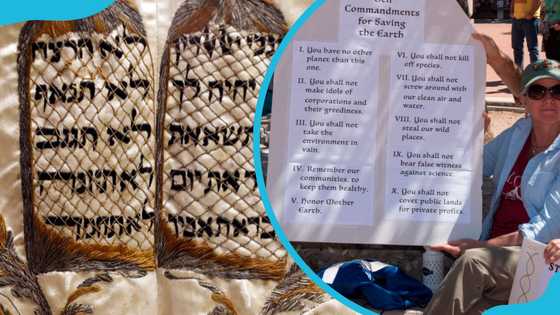 יהיה לך
לא תשא את
את יום
לא תרצח
לא תנאף
לא תגנב
לא
לא תחמד
Ten
Commandments
for Saving
the Earth
I. You have no other
planet than this
one.
II. You shall not
make idols of
corporations and
their greediness.
III. You shall not
take the
environment in
vain.
IV. Remember our
communities, to
keep them healthy.
V. Honor Mother
Earth.
VI. You shall not kill
off species.
VII. You shall not
screw around with
our clean air and
water.
VIII. You shall not
steal our wild
places.
IX. You shall not
bear false witness
against science.
X. You shall not
covet public lands
for private profits.
ST